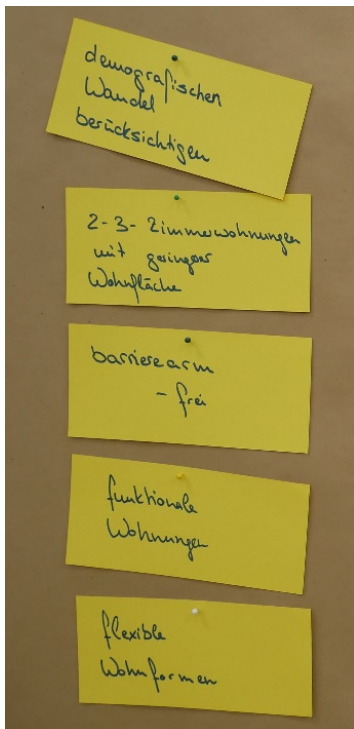 demografischen
Wandel
berücksichtigen
2-3-Zimmerwohnungen
mit geringer
Wohnfläche
barrierearm
- frei
funktionale
Wohnungen
flexible
Wohnformen